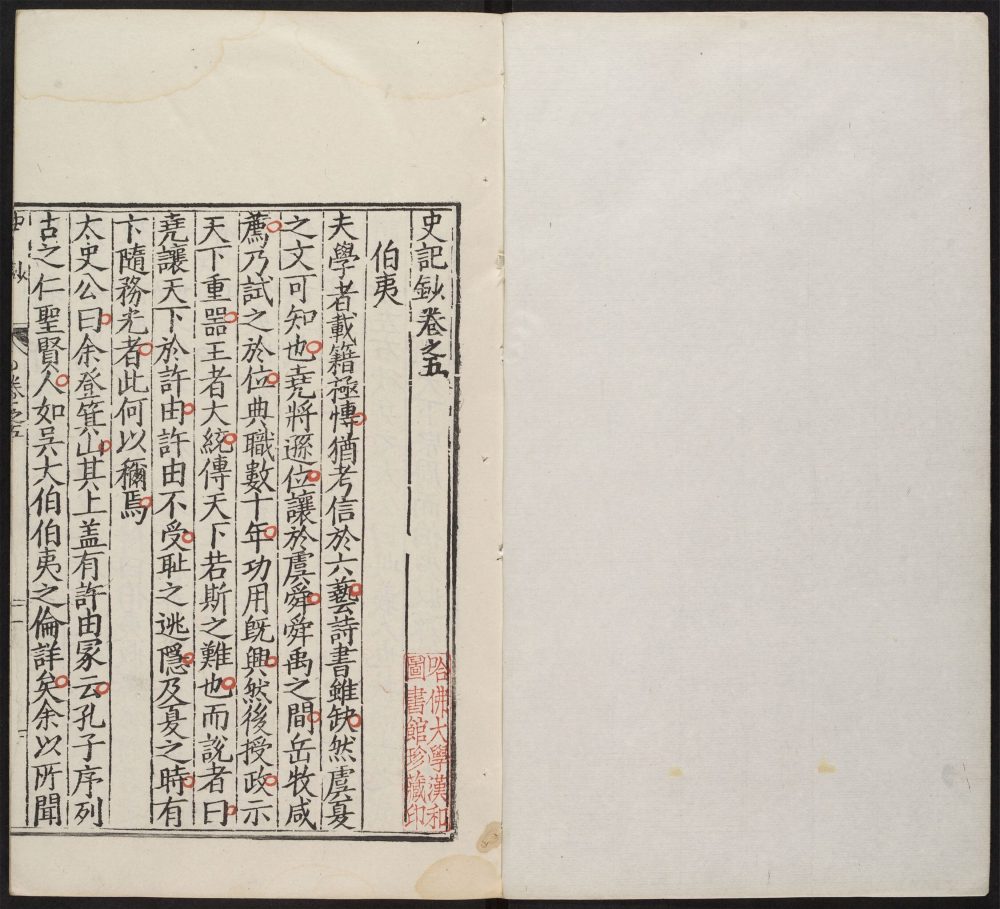 史記鈔卷之五
伯夷
夫學者載籍極博猶考信於六藝詩書雖缺然虞夏
之文可知也堯將遜位讓於虞舜舜禹之間岳牧咸
薦乃試之於位典職數十年功用既興然後授政示
天下重器王者大統傳天下若斯之難也而說者曰
堯讓天下於許由許由不受耻之逃隱及夏之時有
卞隨務光者此何以稱焉
太史公曰余登箕山其上盖有許由冢云孔子序列
古之仁聖賢人如吳大伯伯夷之倫詳矣余以所聞
卷之五
哈佛大學漢和
圖書館珍藏印